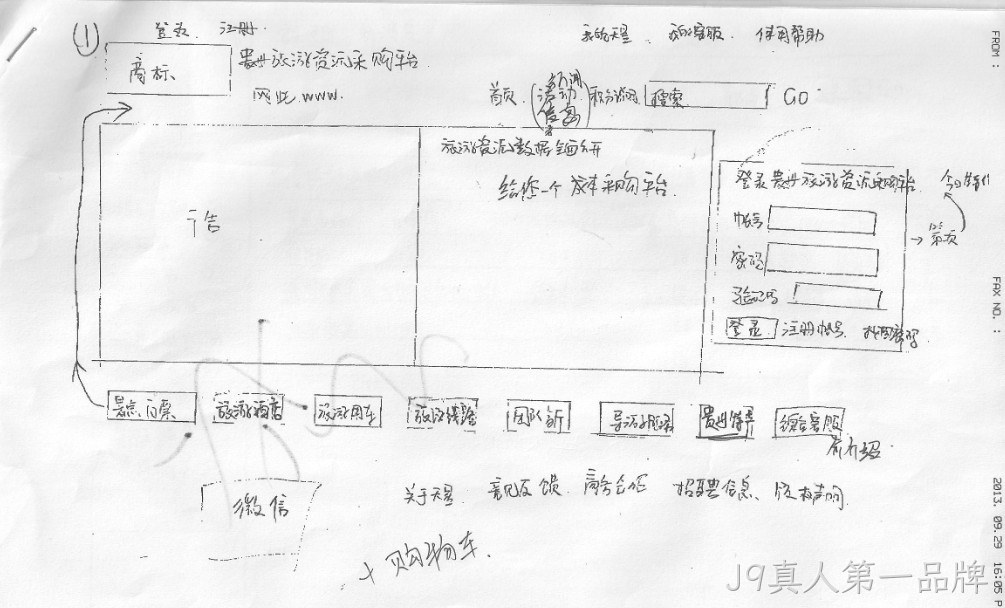 ① 登录 注册
我的天星、在线客服、使用帮助
商标
贵州旅游资源采购平台
网址 www.
首页 新闻 活动 信息 积分 搜索 GO
广告
旅游资源数据全面
给您一个 采购平台
登录贵州旅游资源采购平台
帐号
密码
验证码
登录 注册帐号 找回密码
→ 第页
景点门票 旅游酒店 旅游用车 旅游线路 团队 导游服务 贵州特产 综合客服
有介绍
微信
关于天星 意见反馈 商务合作 招聘信息、版权声明
+ 购物车.
FROM :
FAX NO. :
2013. 09. 29 16:05 P
J9真人第一品牌